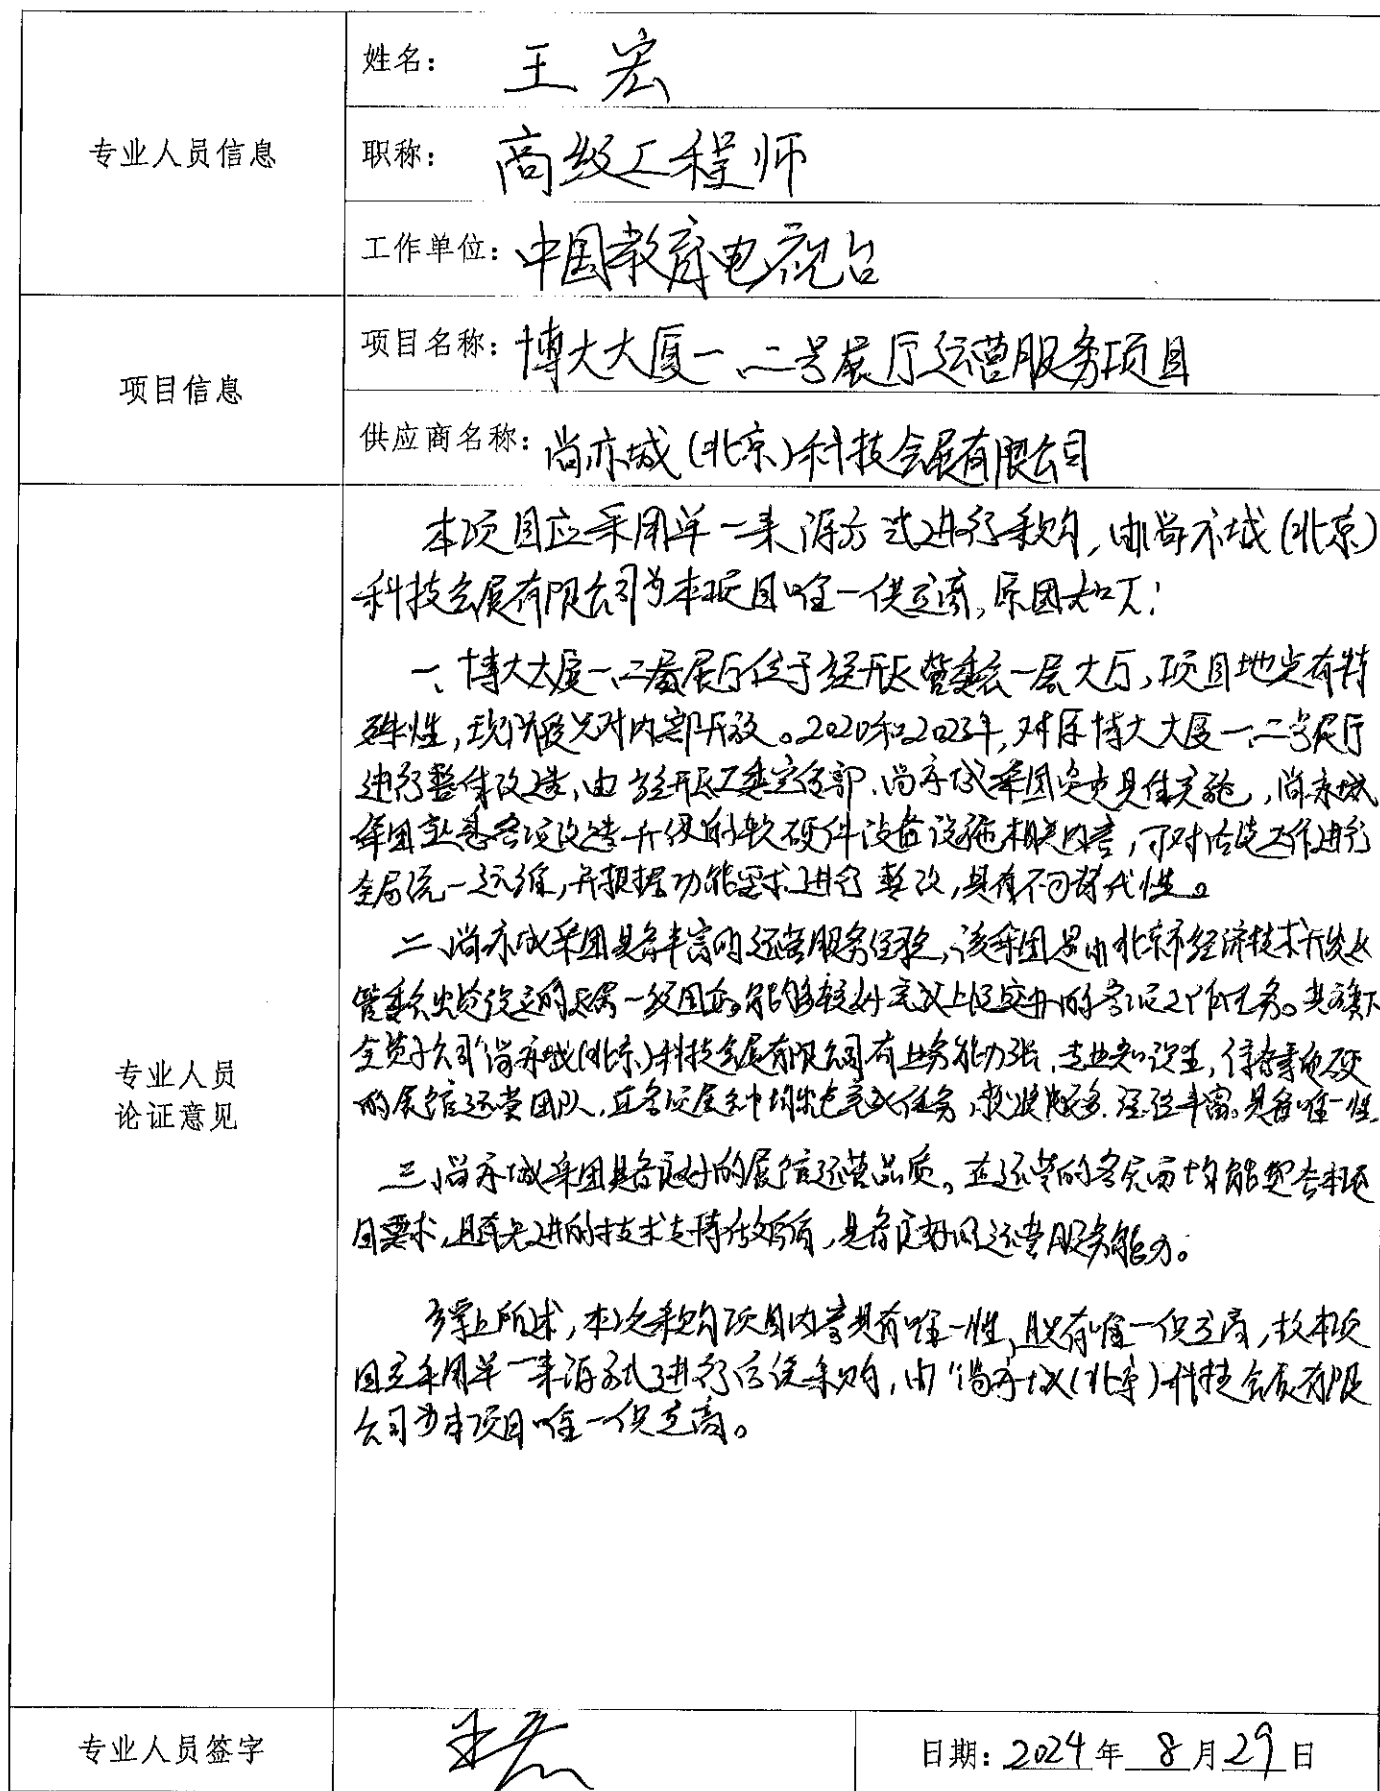 专业人员信息
姓名： 王宏
职称： 高级工程师
工作单位：中国教育电视台
项目信息
项目名称：博大大厦一、二号展厅运营服务项目
供应商名称：尚亦城(北京)科技会展有限公司
专业人员
论证意见
本项目应采用单一来源方式进行采购，由尚亦城(北京)
科技会展有限公司为本项目唯一供应商，原因如下：
一、博大大厦一、二号展厅位于经开区管委会一层大厅，项目地点有特
殊性，现阶段只对内部开放。2020和2023年，对原博大大厦一、二号展厅
进行整体改造，由经开区工委宣传部、尚亦城集团负责具体实施，尚亦城
集团熟悉各项改造升级的软硬件设备设施相关内容，可对后续工作进行
全局统一运维，并根据功能要求进行整改，具有不可替代性。
二、尚亦城集团具备丰富的运营服务经验，该集团是由北京市经济技术开发区
管委会出资设立的区属一级国企，能够较好完成上级交办的各项工作任务。其旗下
全资子公司尚亦城(北京)科技会展有限公司有业务能力强、专业知识
的展馆运营团队，在各项展会中均出色完成任务，经验丰富，具备唯一性。
三、尚亦城集团具备良好的展馆运营品质，在运营的各方面均能契合本项
目要求，且有先进的技术支持，具备良好的运营服务能力。
综上所述，本次采购项目内容具有唯一性，且只有唯一供应商，故本项
目应采用单一来源方式进行后续采购，由尚亦城(北京)科技会展有限
公司为本项目唯一供应商。
专业人员签字 王宏 日期：2024年8月29日